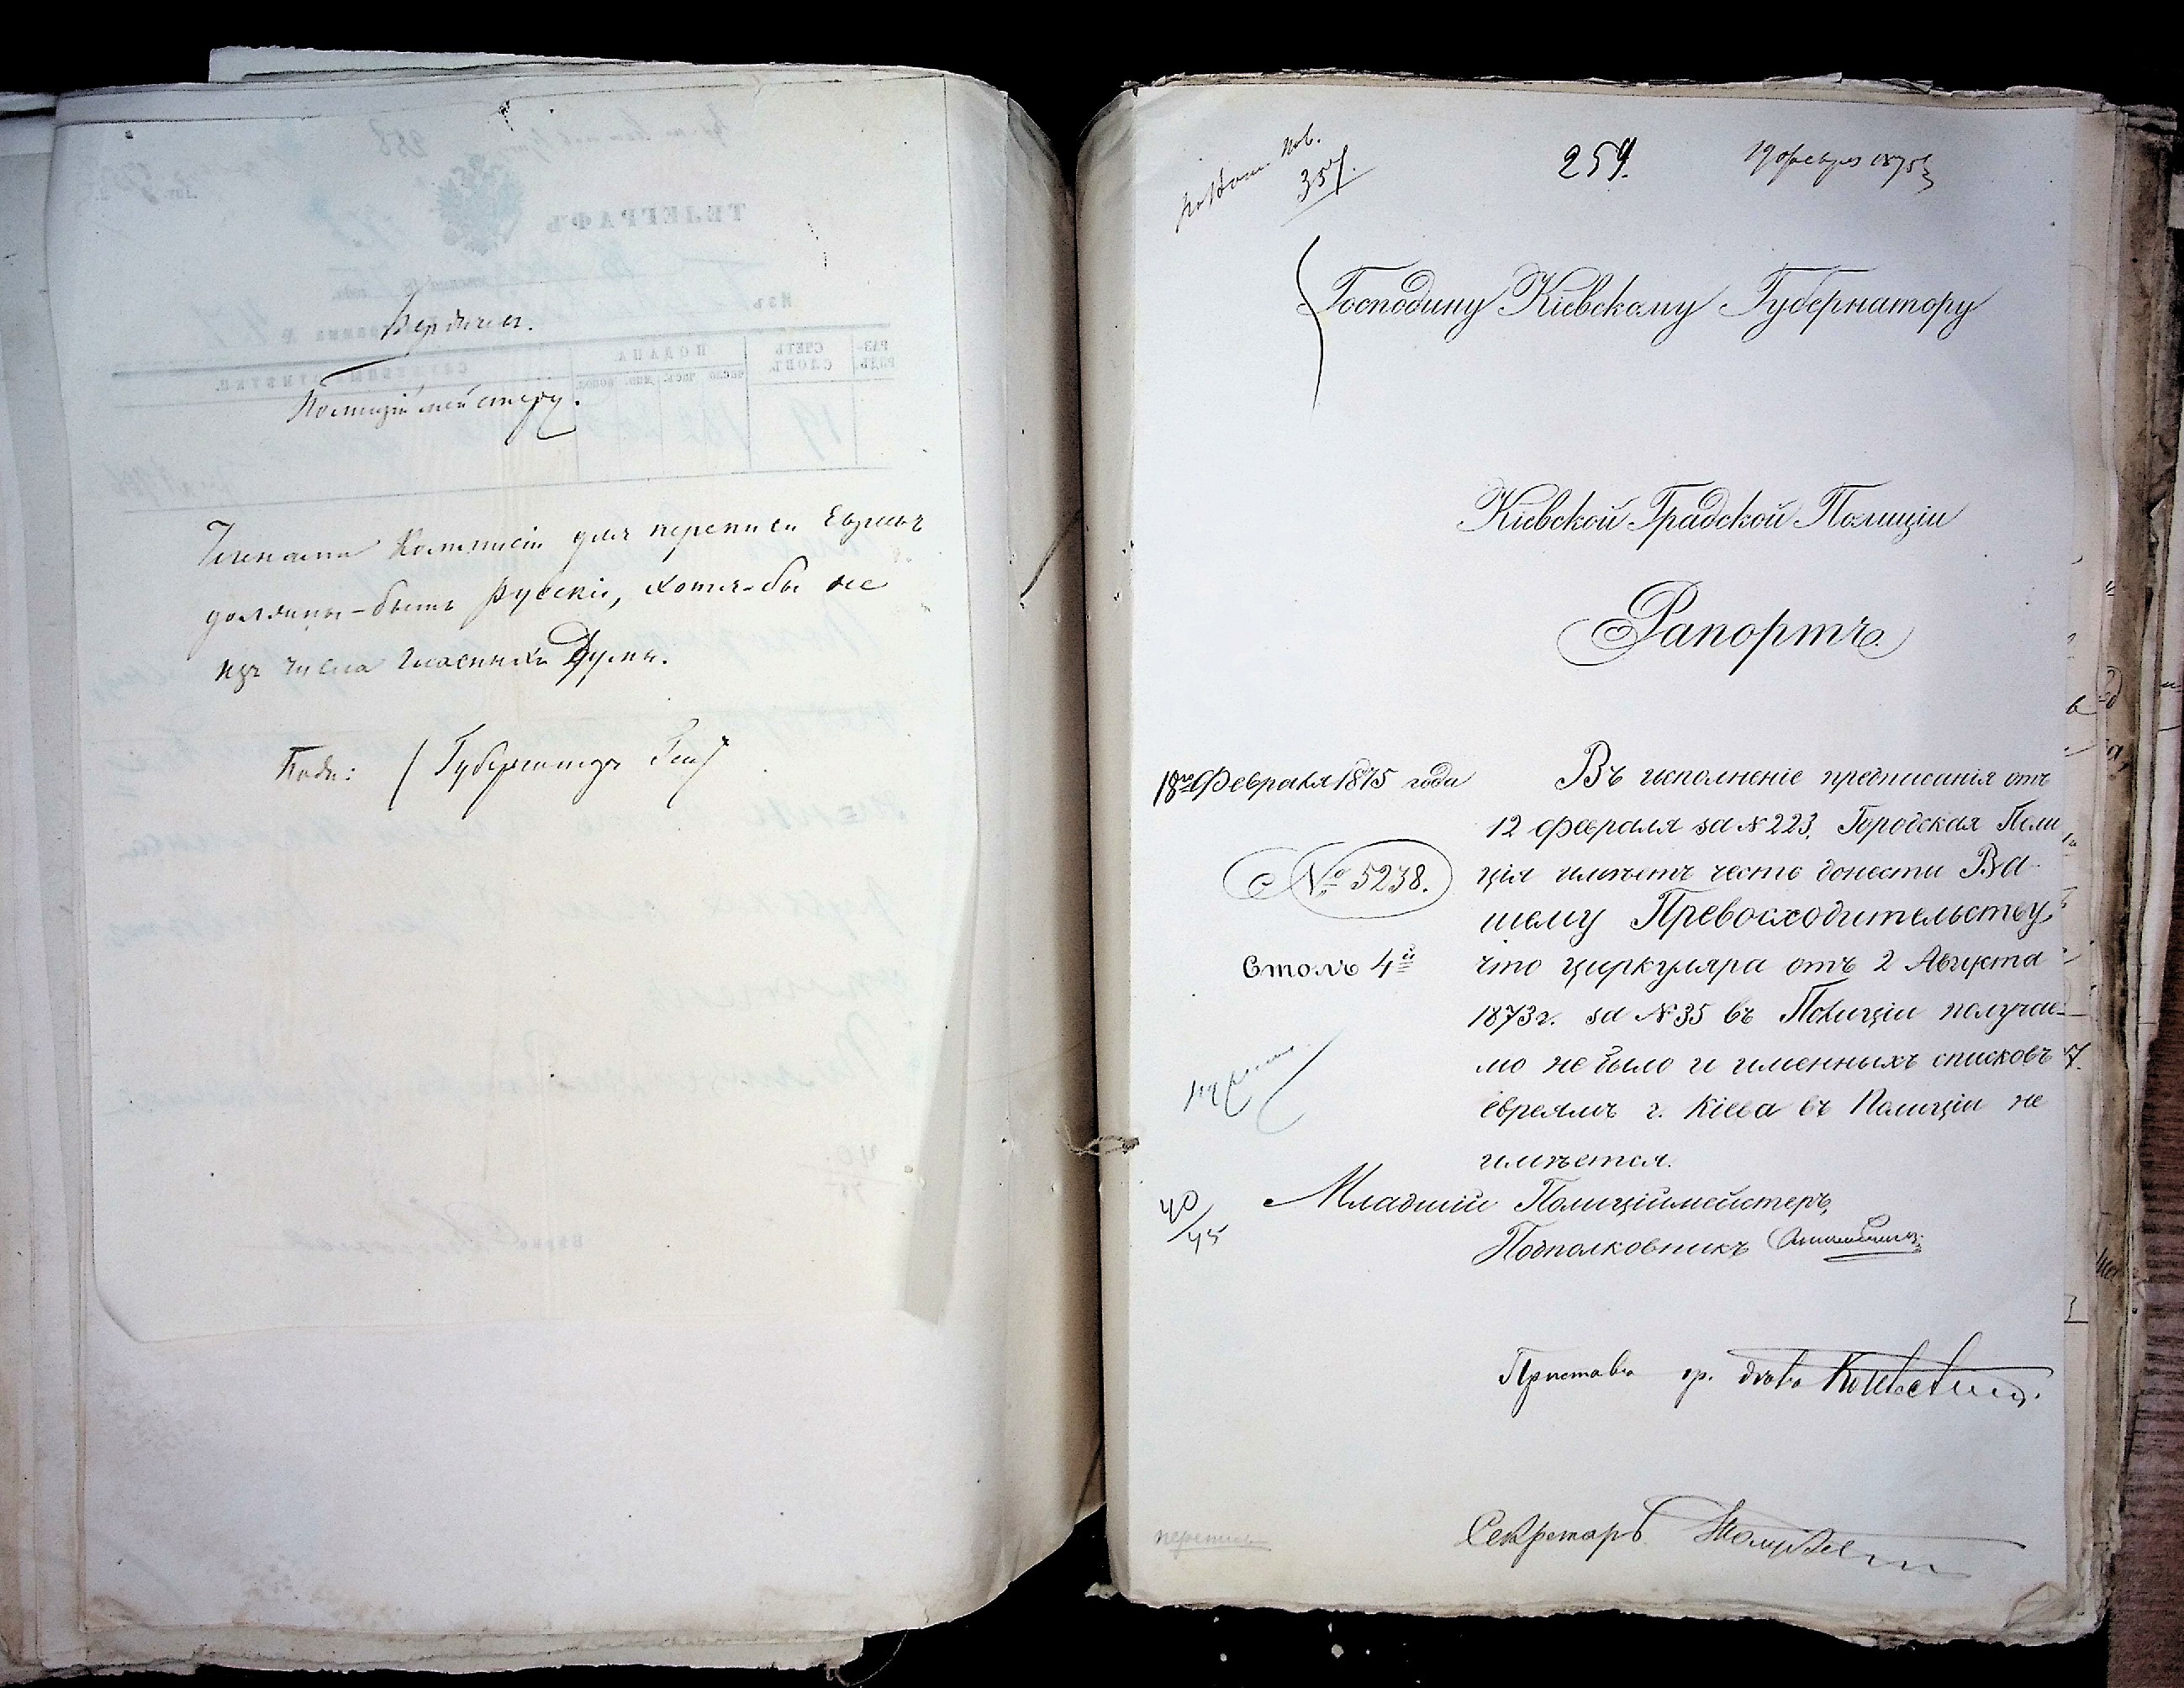 Бердичев.
Полиціймейстеру.
Членами Коммисіи для переписи Евреевъ
должны-быть Русскіе, хотя-бы не
изъ числа Гласныхъ Думы.
Подп: (Губернаторъ
357.
259.
19 февраля 1875 г
Господину Кіевскому Губернатору
Кіевской Градской Полиціи
Рапортъ.
18го Февраля 1875 года
№ 5238.
Столъ 4й
Въ исполненіе предписанія отъ
12 февраля за № 223, Городская Поли
ція имѣетъ честь донести Ва-
шему Превосходительству,
что циркуляра отъ 2 Августа
1873 г. за № 35 въ Полиціи получае-
мо не было и именныхъ списковъ
евреямъ г. Кіева въ Полиціи не
имѣется.
40/75
Младшій Полиціймейстеръ,
Подполковникъ
Приставъ
Секретарь